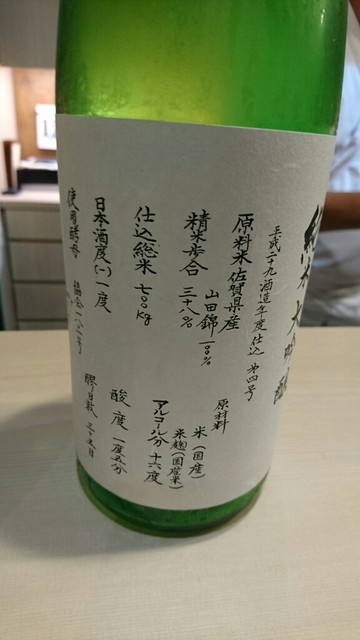 純米大吟醸
平成二十九酒造年度仕込 第四号
原料米 佐賀県産
山田錦 一〇〇%
精米歩合 三十八%
仕込総米 七〇〇kg
日本酒度(一)一度
使用酵母 協会一八〇一号
原材料
米(国産)
米麹(国産米)
アルコール分 十六度
酸度 一度五分
醪日数 三十五日